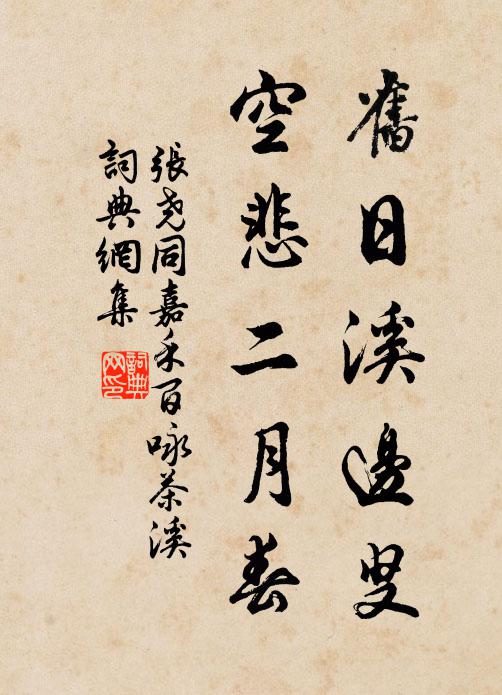 舊日溪邊叟
空悲二月春
張堯同嘉禾百咏茶溪
詞典網集
詞典网印